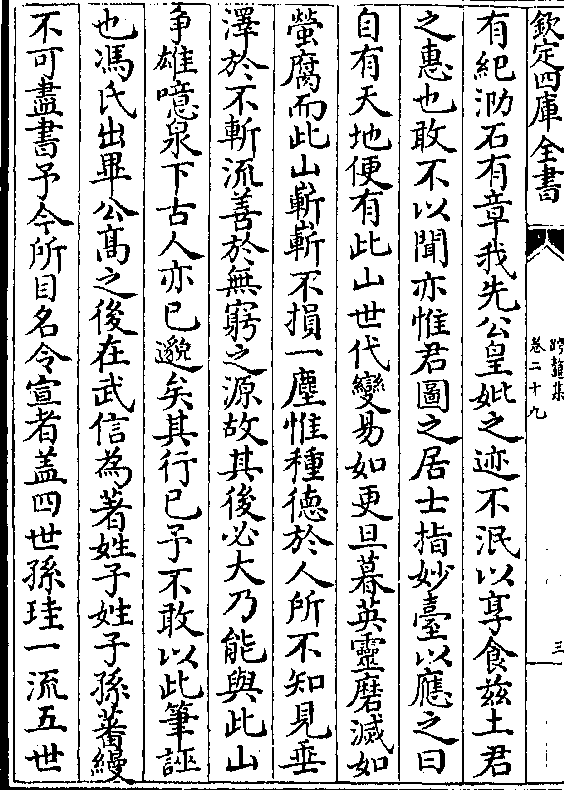 欽定四庫全書
跨鼇集
卷二十九
三
有紀泐石有章我先公皇妣之迹不泯以享食兹土君
之惠也敢不以聞亦惟君圖之居士指妙臺以應之曰
自有天地便有此山世代變易如更旦暮英靈磨滅如
螢腐而此山嶄嶄不損一塵惟種德於人所不知見垂
澤於不斬流善於無窮之源故其後必大乃能與此山
争雄噫泉下古人亦已邈矣其行已予不敢以此筆誣
也馮氏出畢公髙之後在武信為著姓子姓子孫蕃縵
不可盡書予今所目名令宣者盖四世孫珪一流五世